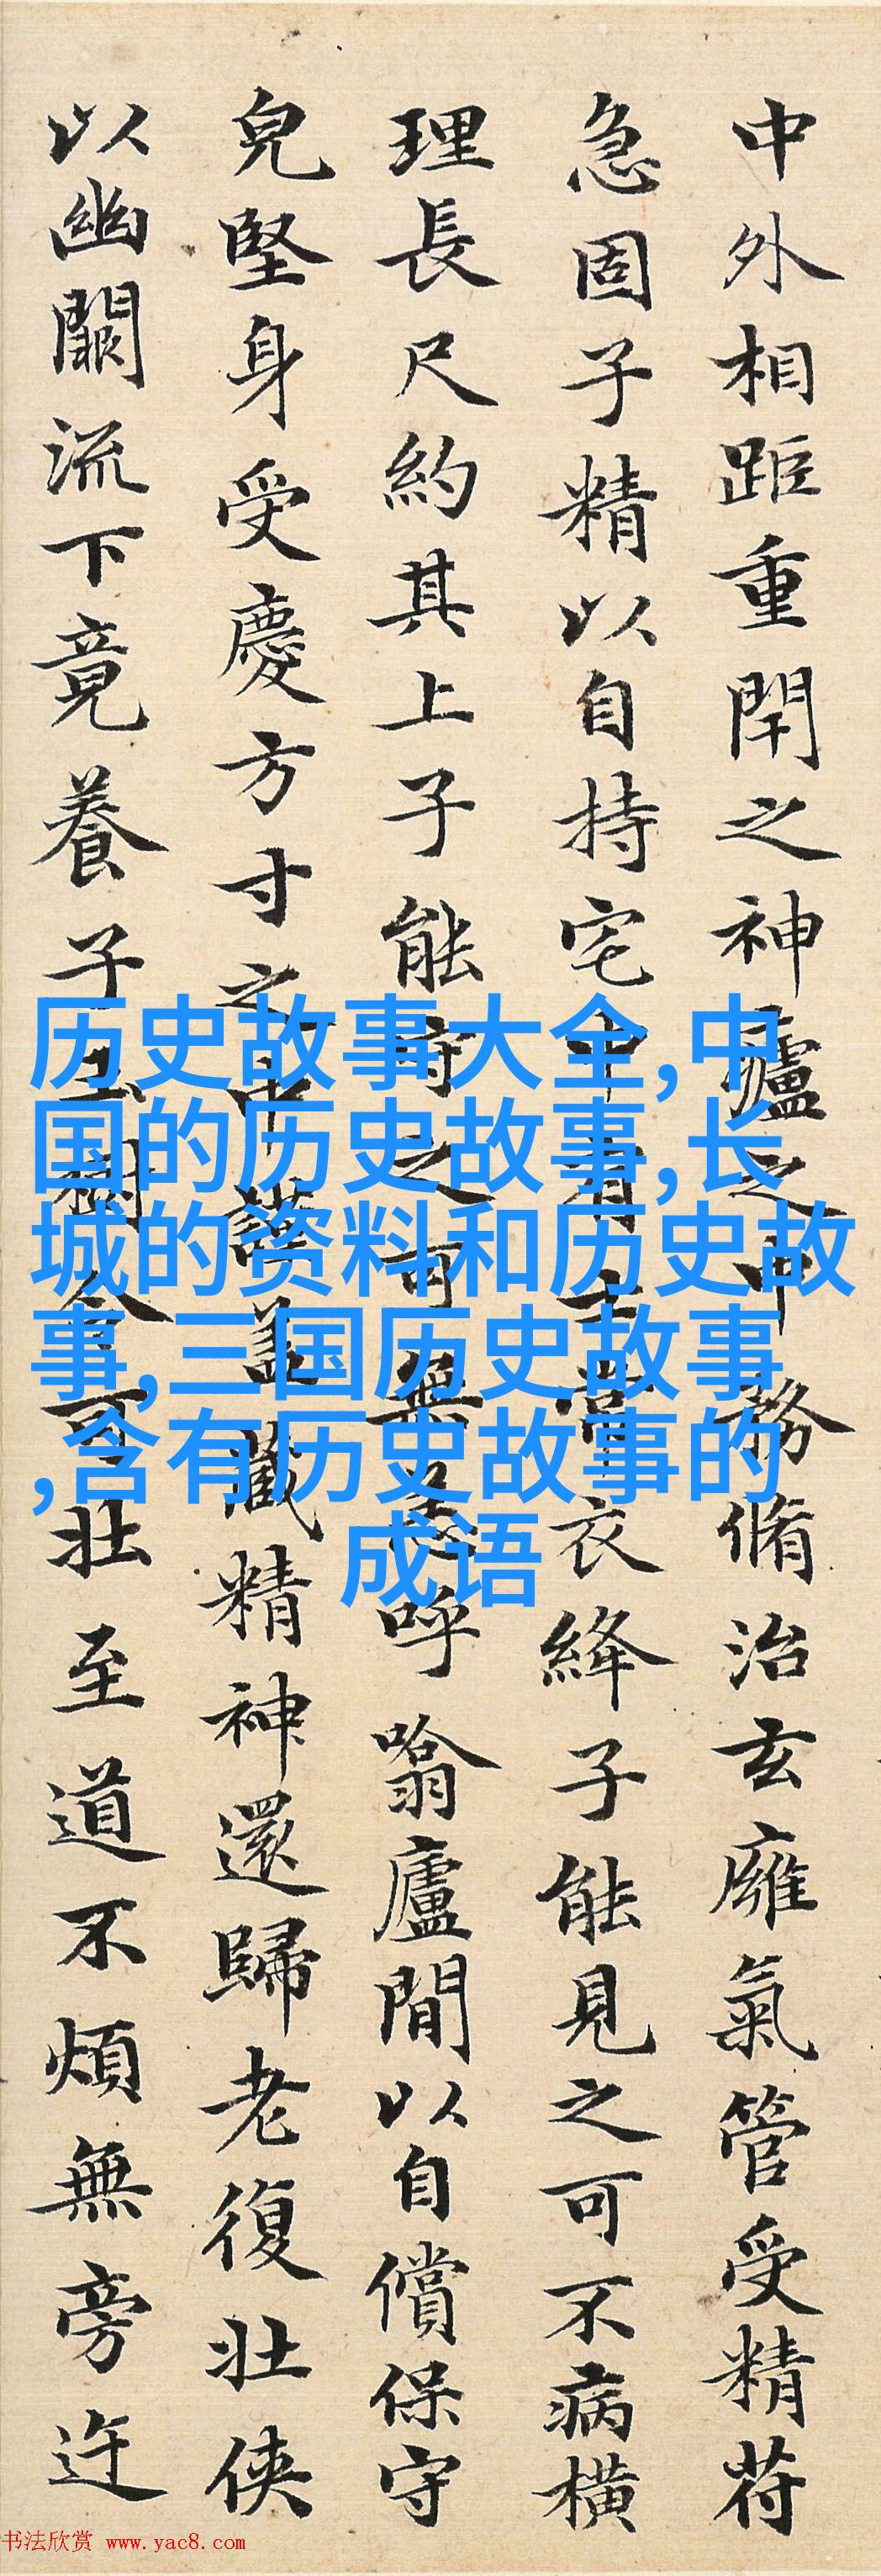 中外相距重閇之神廬之中務脩治玄廱氣管受精苻
急固子精以自持宅中有士常衣絳子能見之可不病橫
理長尺約其上子能守之可無恙呼噏廬間以自償保守
皃堅身受慶方寸之中謹蓋藏精神還歸老復壯俠
以幽闕流下竟養子玉樹令可壯至道不煩無旁迕
历史故事大全,中
国的历史故事,长
城的资料和历史故
事,三国历史故事
,含有历史故事的
成语
书法欣赏 www.yac8.com